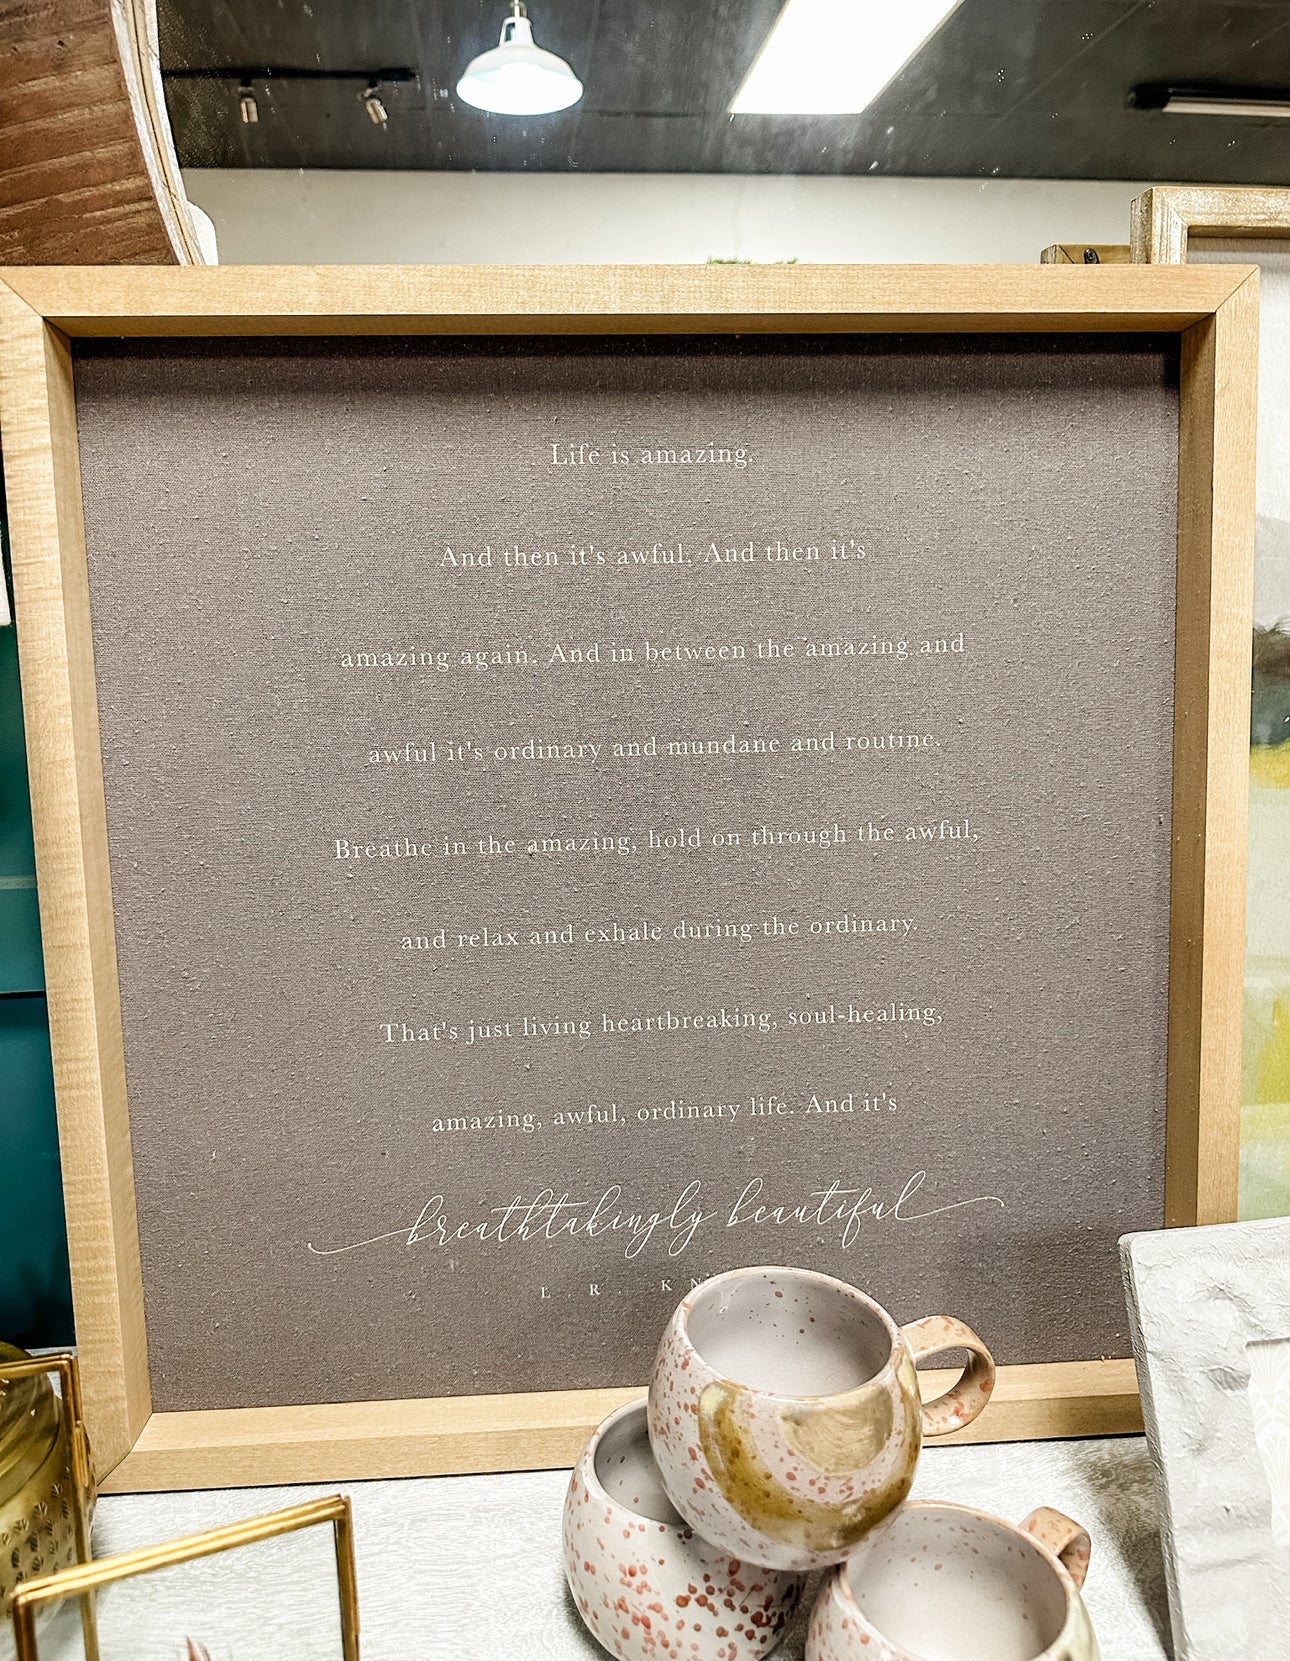 Life is amazing.
And then it's awful. And then it's
amazing again. And in between the amazing and
awful it's ordinary and mundane and routine.
Breathe in the amazing, hold on through the awful,
and relax and exhale during the ordinary.
That's just living heartbreaking, soul-healing,
amazing, awful, ordinary life. And it's
breathtakingly beautiful
L . R . KN